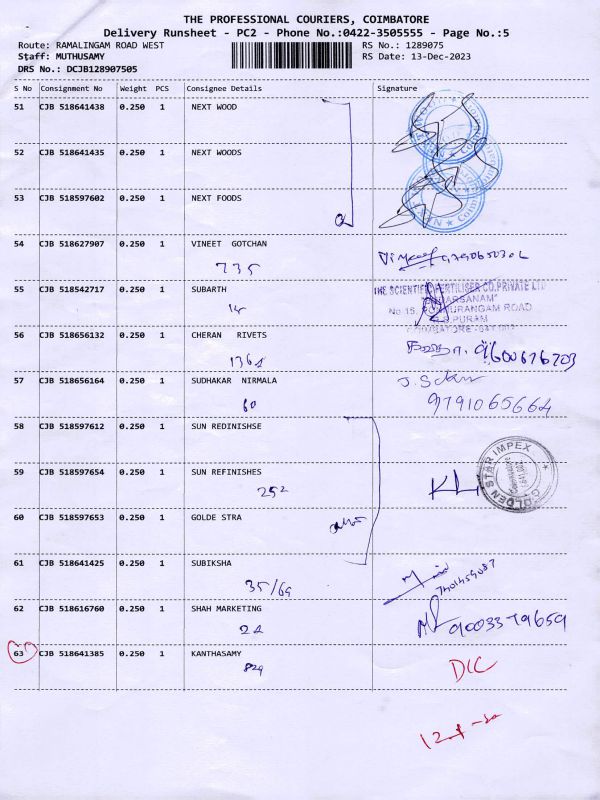 THE PROFESSIONAL COURIERS, COIMBATORE
Delivery Runsheet - PC2 - Phone No.:0422-3505555 - Page No.:5
Route: RAMALINGAM ROAD WEST RS No.: 1289075
Staff: MUTHUSAMY RS Date: 13-Dec-2023
DRS No.: DCJB128907505
S No Consignment No Weight PCS Consignee Details Signature
51 CJB 518641438 0.250 1 NEXT WOOD
52 CJB 518641435 0.250 1 NEXT WOODS
53 CJB 518597602 0.250 1 NEXT FOODS
54 CJB 518627907 0.250 1 VINEET GOTCHAN
735
55 CJB 518542717 0.250 1 SUBARTH THE SCIENTIFIC FERTILISER CO.PRIVATE LTD
No.15, ROAD
R.S.PURAM
COIMBATORE
56 CJB 518656132 0.250 1 CHERAN RIVETS 9600676703
57 CJB 518656164 0.250 1 SUDHAKAR NIRMALA
60 9791065664
58 CJB 518597612 0.250 1 SUN REDINISHSE
GOLDEN STAR IMPEX
59 CJB 518597654 0.250 1 SUN REFINISHES
252
60 CJB 518597653 0.250 1 GOLDE STRA
61 CJB 518641425 0.250 1 SUBIKSHA
35/69
62 CJB 518616760 0.250 1 SHAH MARKETING
22 9003379659
63 CJB 518641385 0.250 1 KANTHASAMY
829 DLC